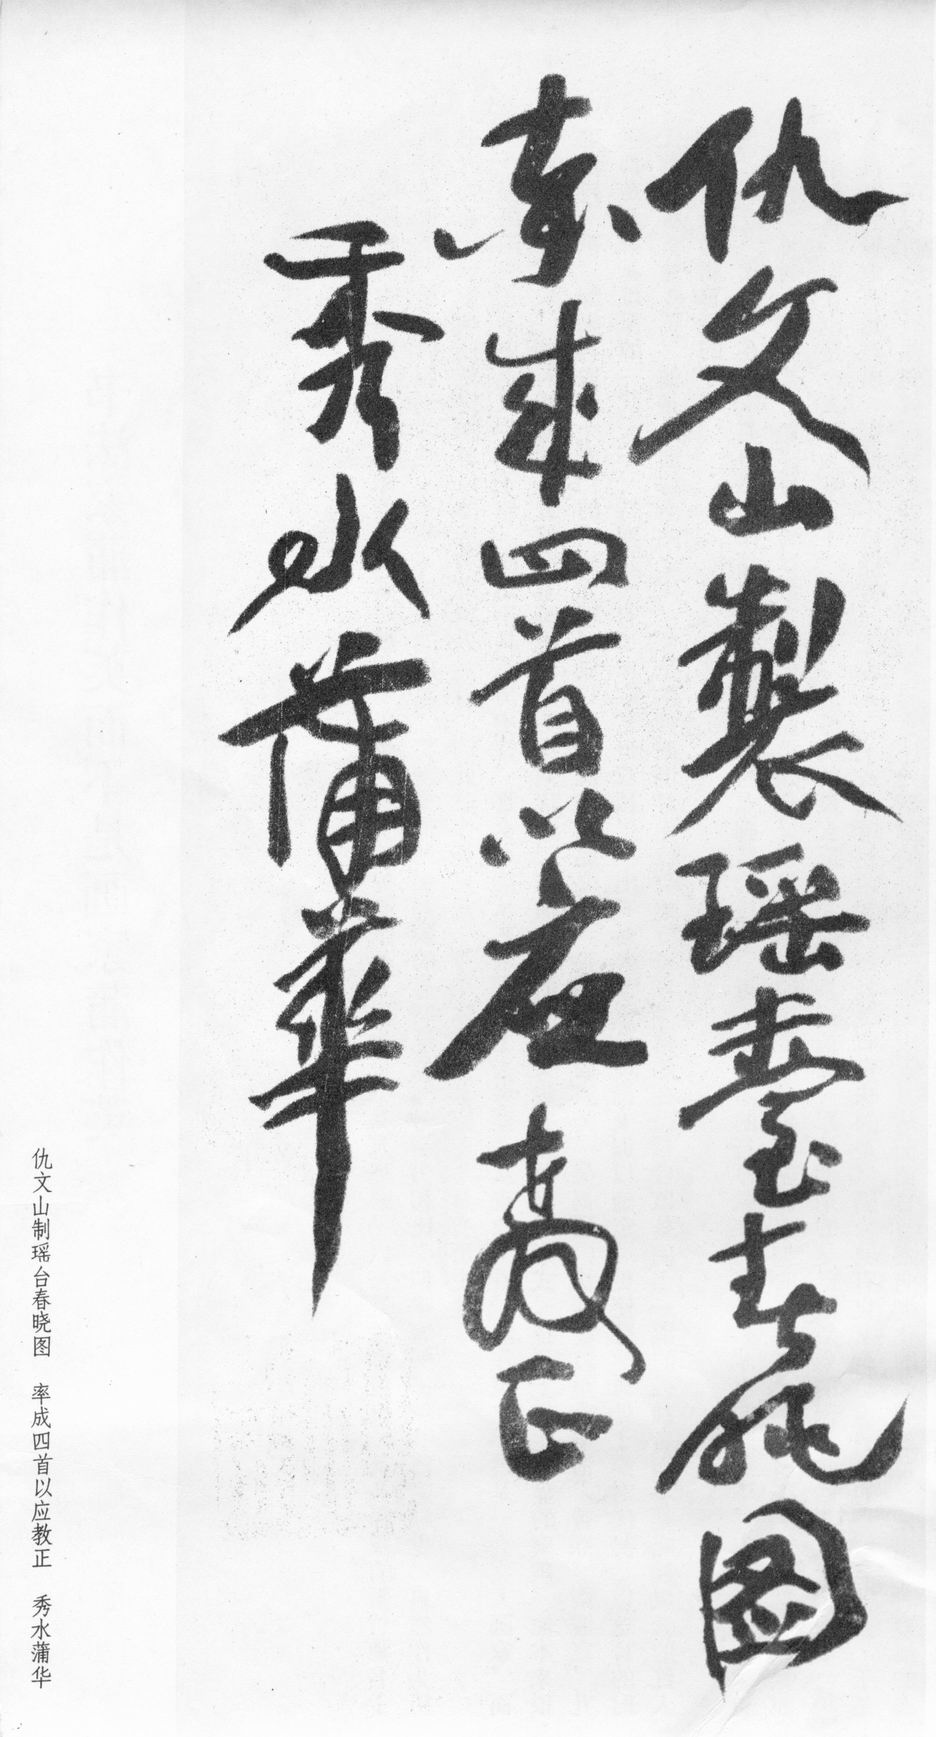 仇文山製瑶臺春曉图
率成四首以應教正
秀水蒲華
仇文山制瑶台春晓图 率成四首以应教正 秀水蒲华